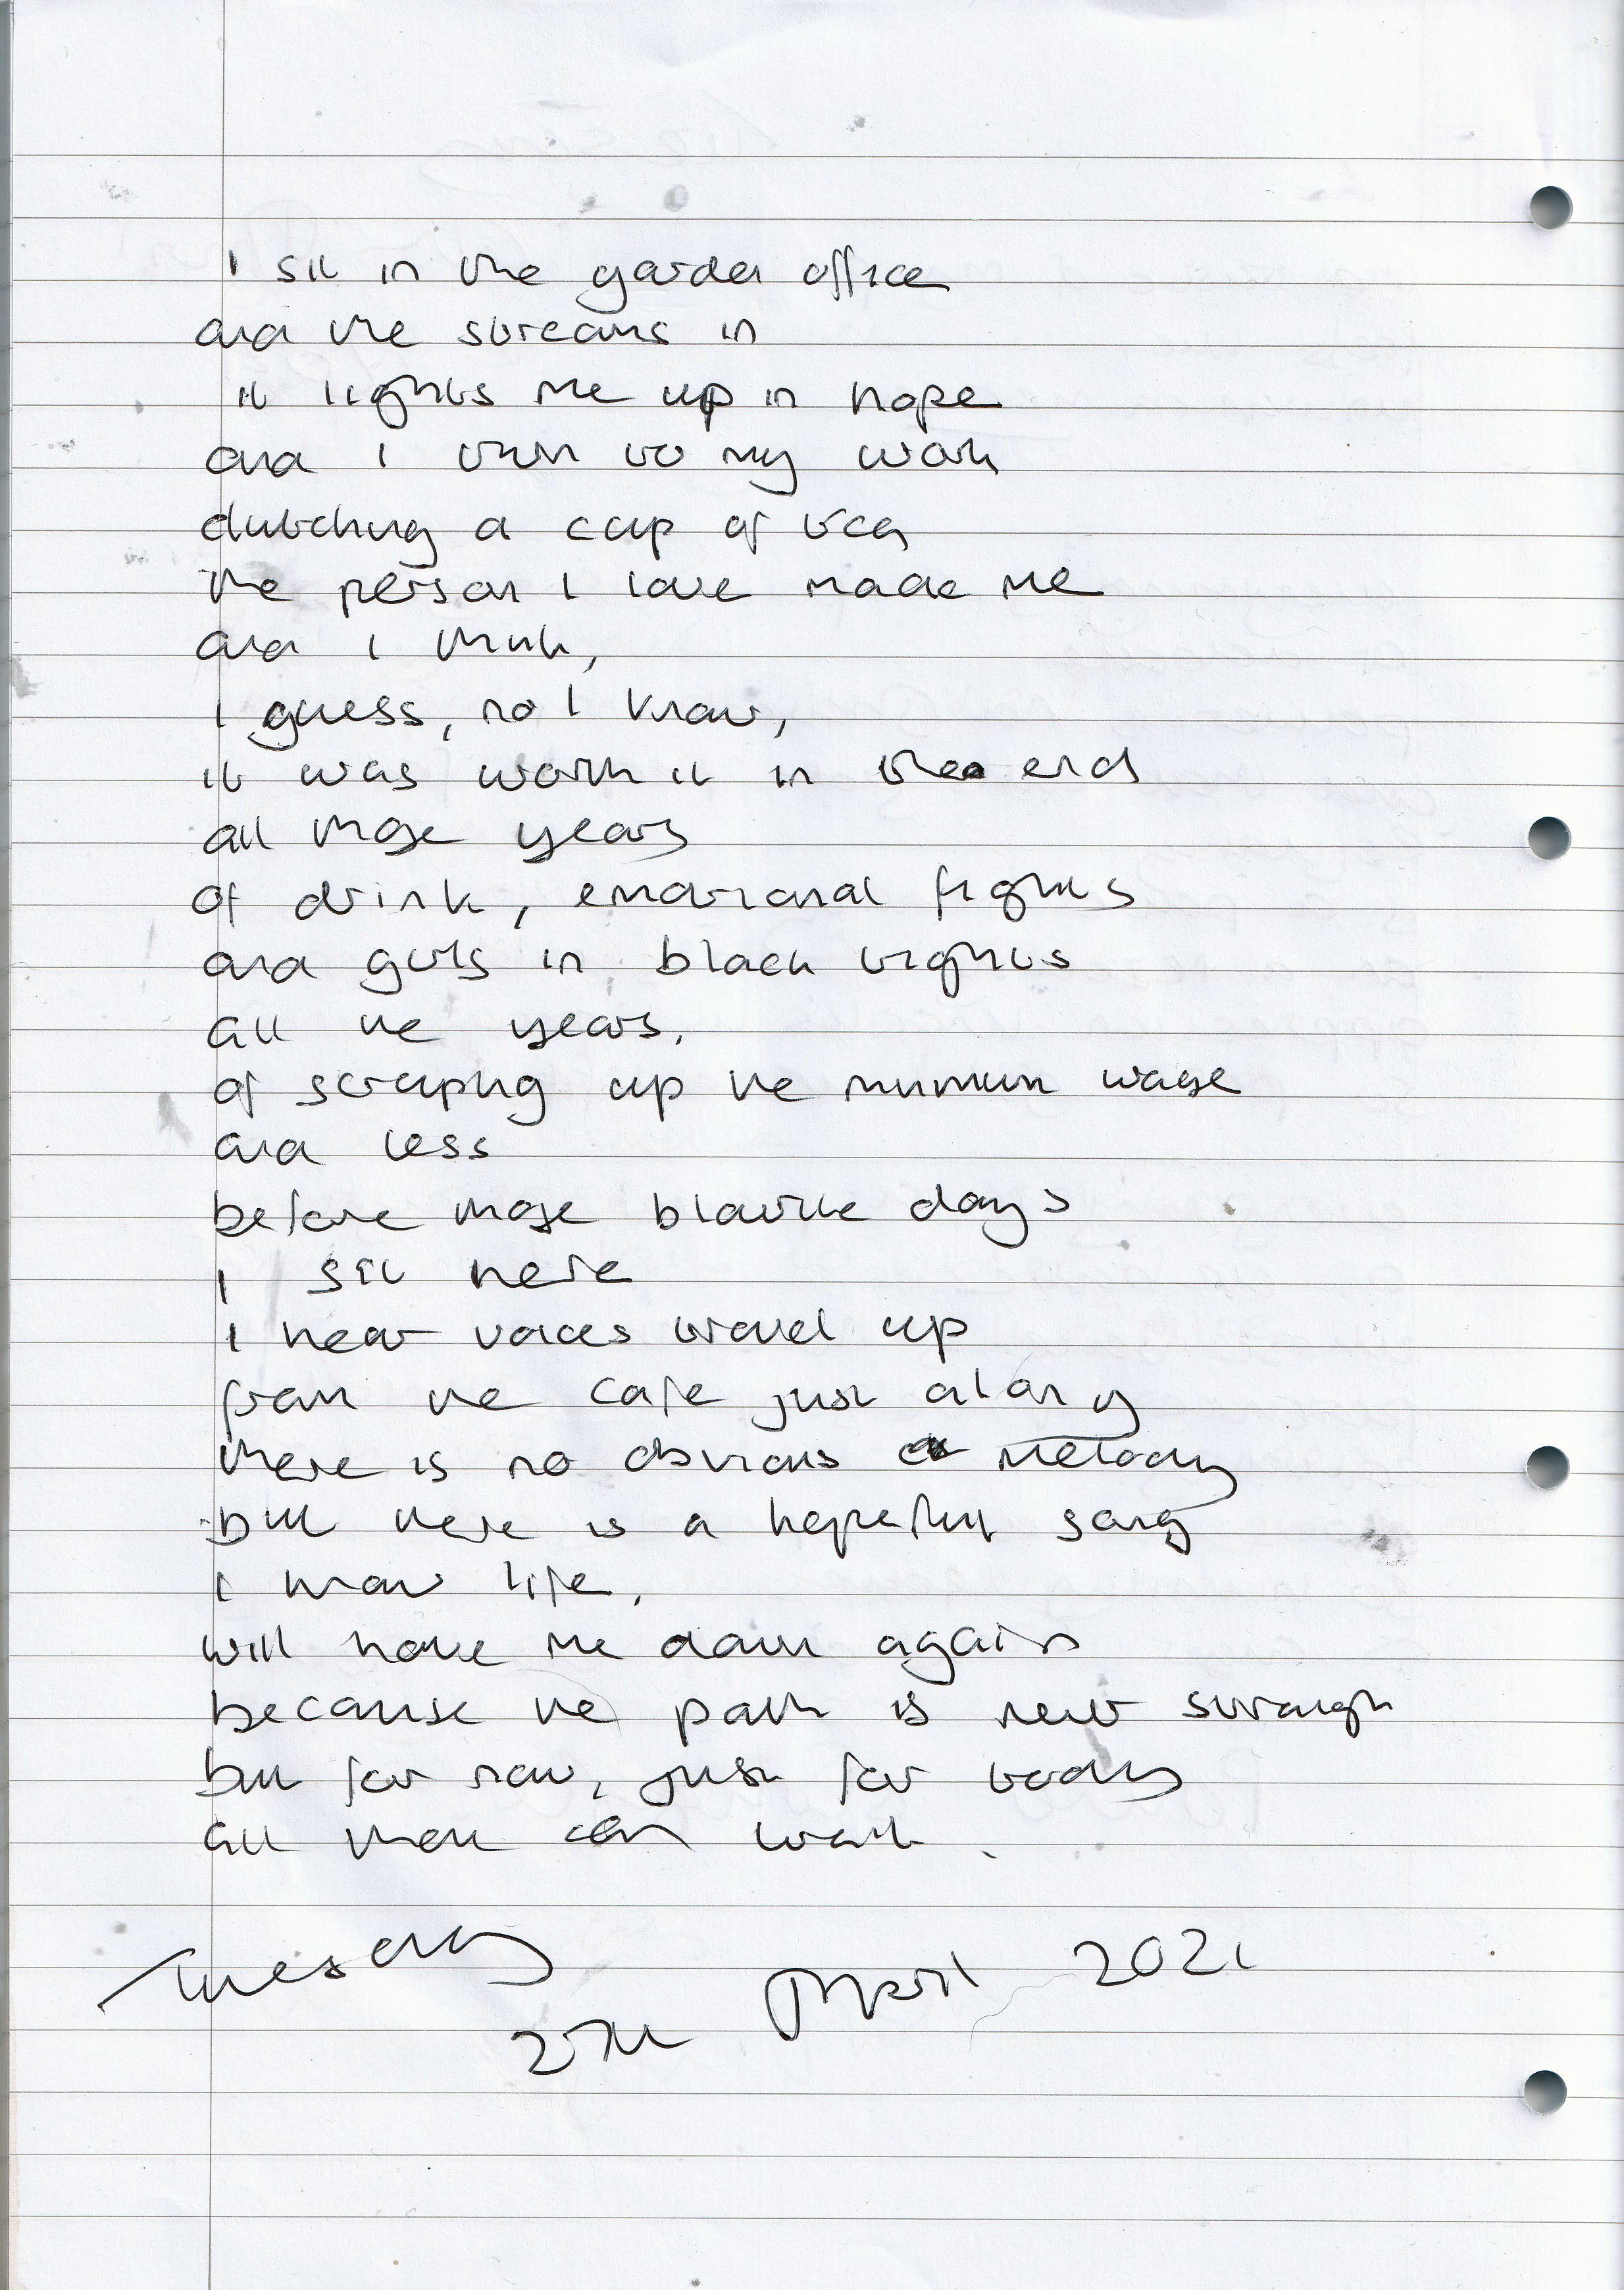 I sit in the garden office
and the streams in
it lights me up in hope
and I turn to my work
clutching a cup of tea
the person I love made me
and I think,
I guess, no I know,
it was worth it in the end
all those years
of drink, emotional fights
and girls in black tights
all the years,
of scraping up the minimum wage
and less
before those blattle days
I sit here
I hear voices travel up
from the cafe just along
there is no obvious melody
but there is a hopeful song
I know life,
will have me down again
because the path is never straight
but for now, just for today
all that can wait.
Tuesday
27th April 2021